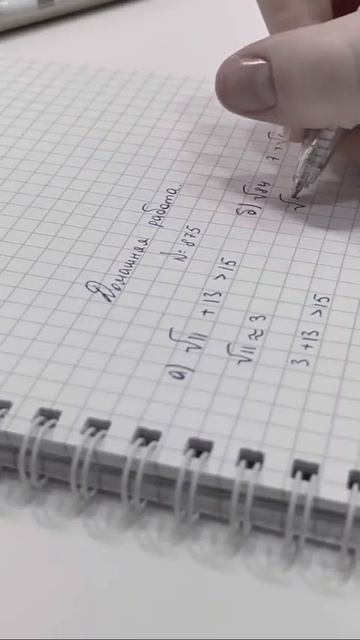 Домашняя работа.
№ 875
а) √11 + 13 > 15
√11 ≈ 3
3 + 13 > 15
б) √84